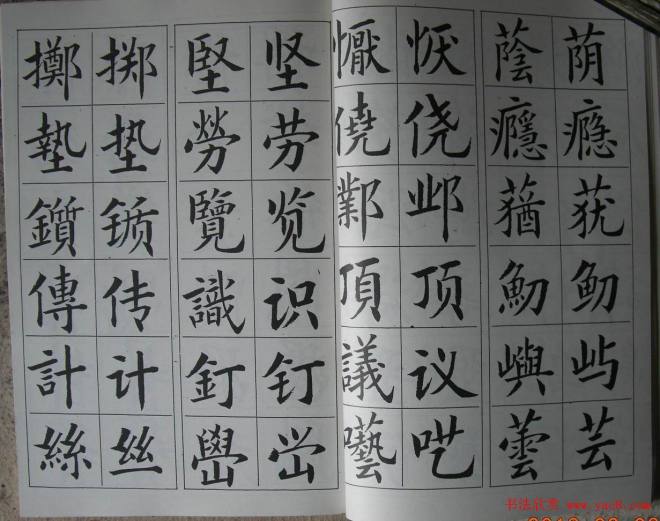 擲 掷 堅 坚 懨 恹 蔭 荫
墊 垫 勞 劳 僥 侥 癮 瘾
鑕 锧 覽 览 鄴 邺 蕕 莸
傳 传 識 识 頂 顶 魛 鱽
計 计 釘 钉 議 议 嶼 屿
絲 丝 嚳 喾 囈 呓 蕓 芸
书法欣赏 www.yac8.com